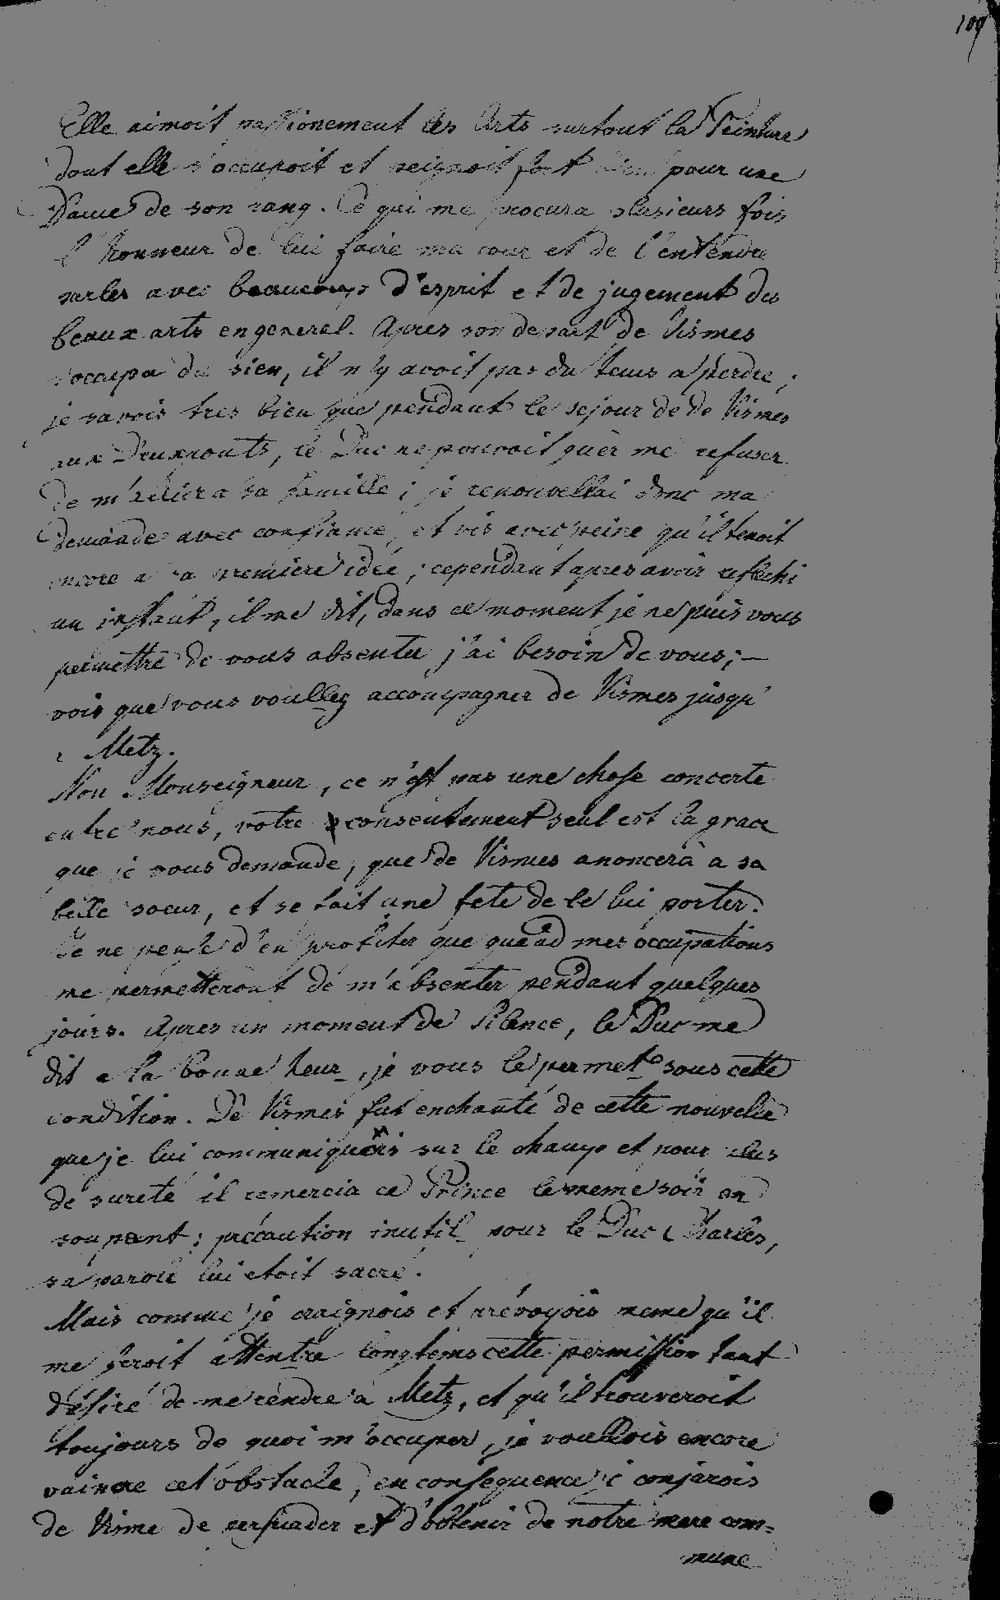 109
Elle aimoit passionement les Arts surtout la Peinture
dont elle s'occupoit et peignoit fort bien pour une
Dame de son rang. Ce qui me procura plusieurs fois
l'honneur de lui faire ma cour et de l'entendre
parler avec beaucoup d'esprit et de jugement des
beaux arts en general. Apres son depart de Vismes
s'occupa du sien, il n'y avoit pas du tems a perdre;
je savois tres bien que pendant le sejour de de Vismes
aux Deuxponts, le Duc ne pouvoit guer me refuser
de m'allier a sa famille; je renouvellai donc ma
demande avec confiance, et vis avec peine qu'il tenoit
encore a sa premiere idée; cependant apres avoir reflechi
un instant, il me dit, dans ce moment je ne puis vous
permettre de vous absenter j'ai besoin de vous; —
vois que vous voullez accompagner de Vismes jusqu'
a Metz.
Non Monseigneur, ce n'est pas une chose concerte
entre nous, votre consentement seul est la grace
que je vous demande, que de Vismes anoncera a sa
belle soeur, et se fait une fete de le lui porter.
Je ne pense d'en profiter que quand mes occupations
me permetteront de m'absenter pendant quelques
jours. Apres un moment de silence, le Duc me
dit a la bonne heur, je vous le permet sous cette
condition. De Vismes fut enchanté de cette nouvelle
que je lui communiquais sur le champ et pour plus
de sureté il remercia ce Prince le meme soir en
soupant; précaution inutil pour le Duc Charles,
sa parole lui etoit sacré.
Mais comme je craignois et prévoyois meme qu'il
me feroit attentre longtems cette permission tant
désiré de me rendre a Metz, et qu'il trouveroit
toujours de quoi m'occuper, je voullois encore
vaincre cet obstacle, en consequence je conjurois
de Visme de persuader et d'obtenir de notre mere com=
mune